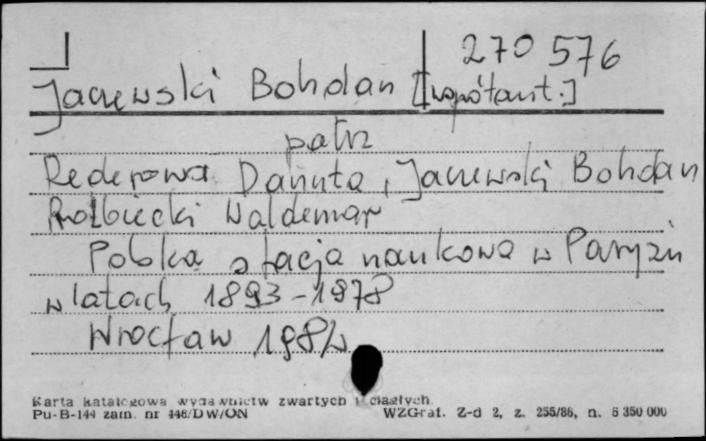 270 576
Jaczewski Bohdan [współaut.]
patrz
Rederowa Danuta, Jaczewski Bohdan
Rolbiecki Waldemar
Polska stacja naukowa w Paryżu
w latach 1893-1978
Wrocław 1982
Karta katalogowa wydawnictw zwartych i ciągłych.
Pu-B-144 zam. nr 446/DW/ON WZGraf. Z-d 2, z. 255/86, n. 6 350 000